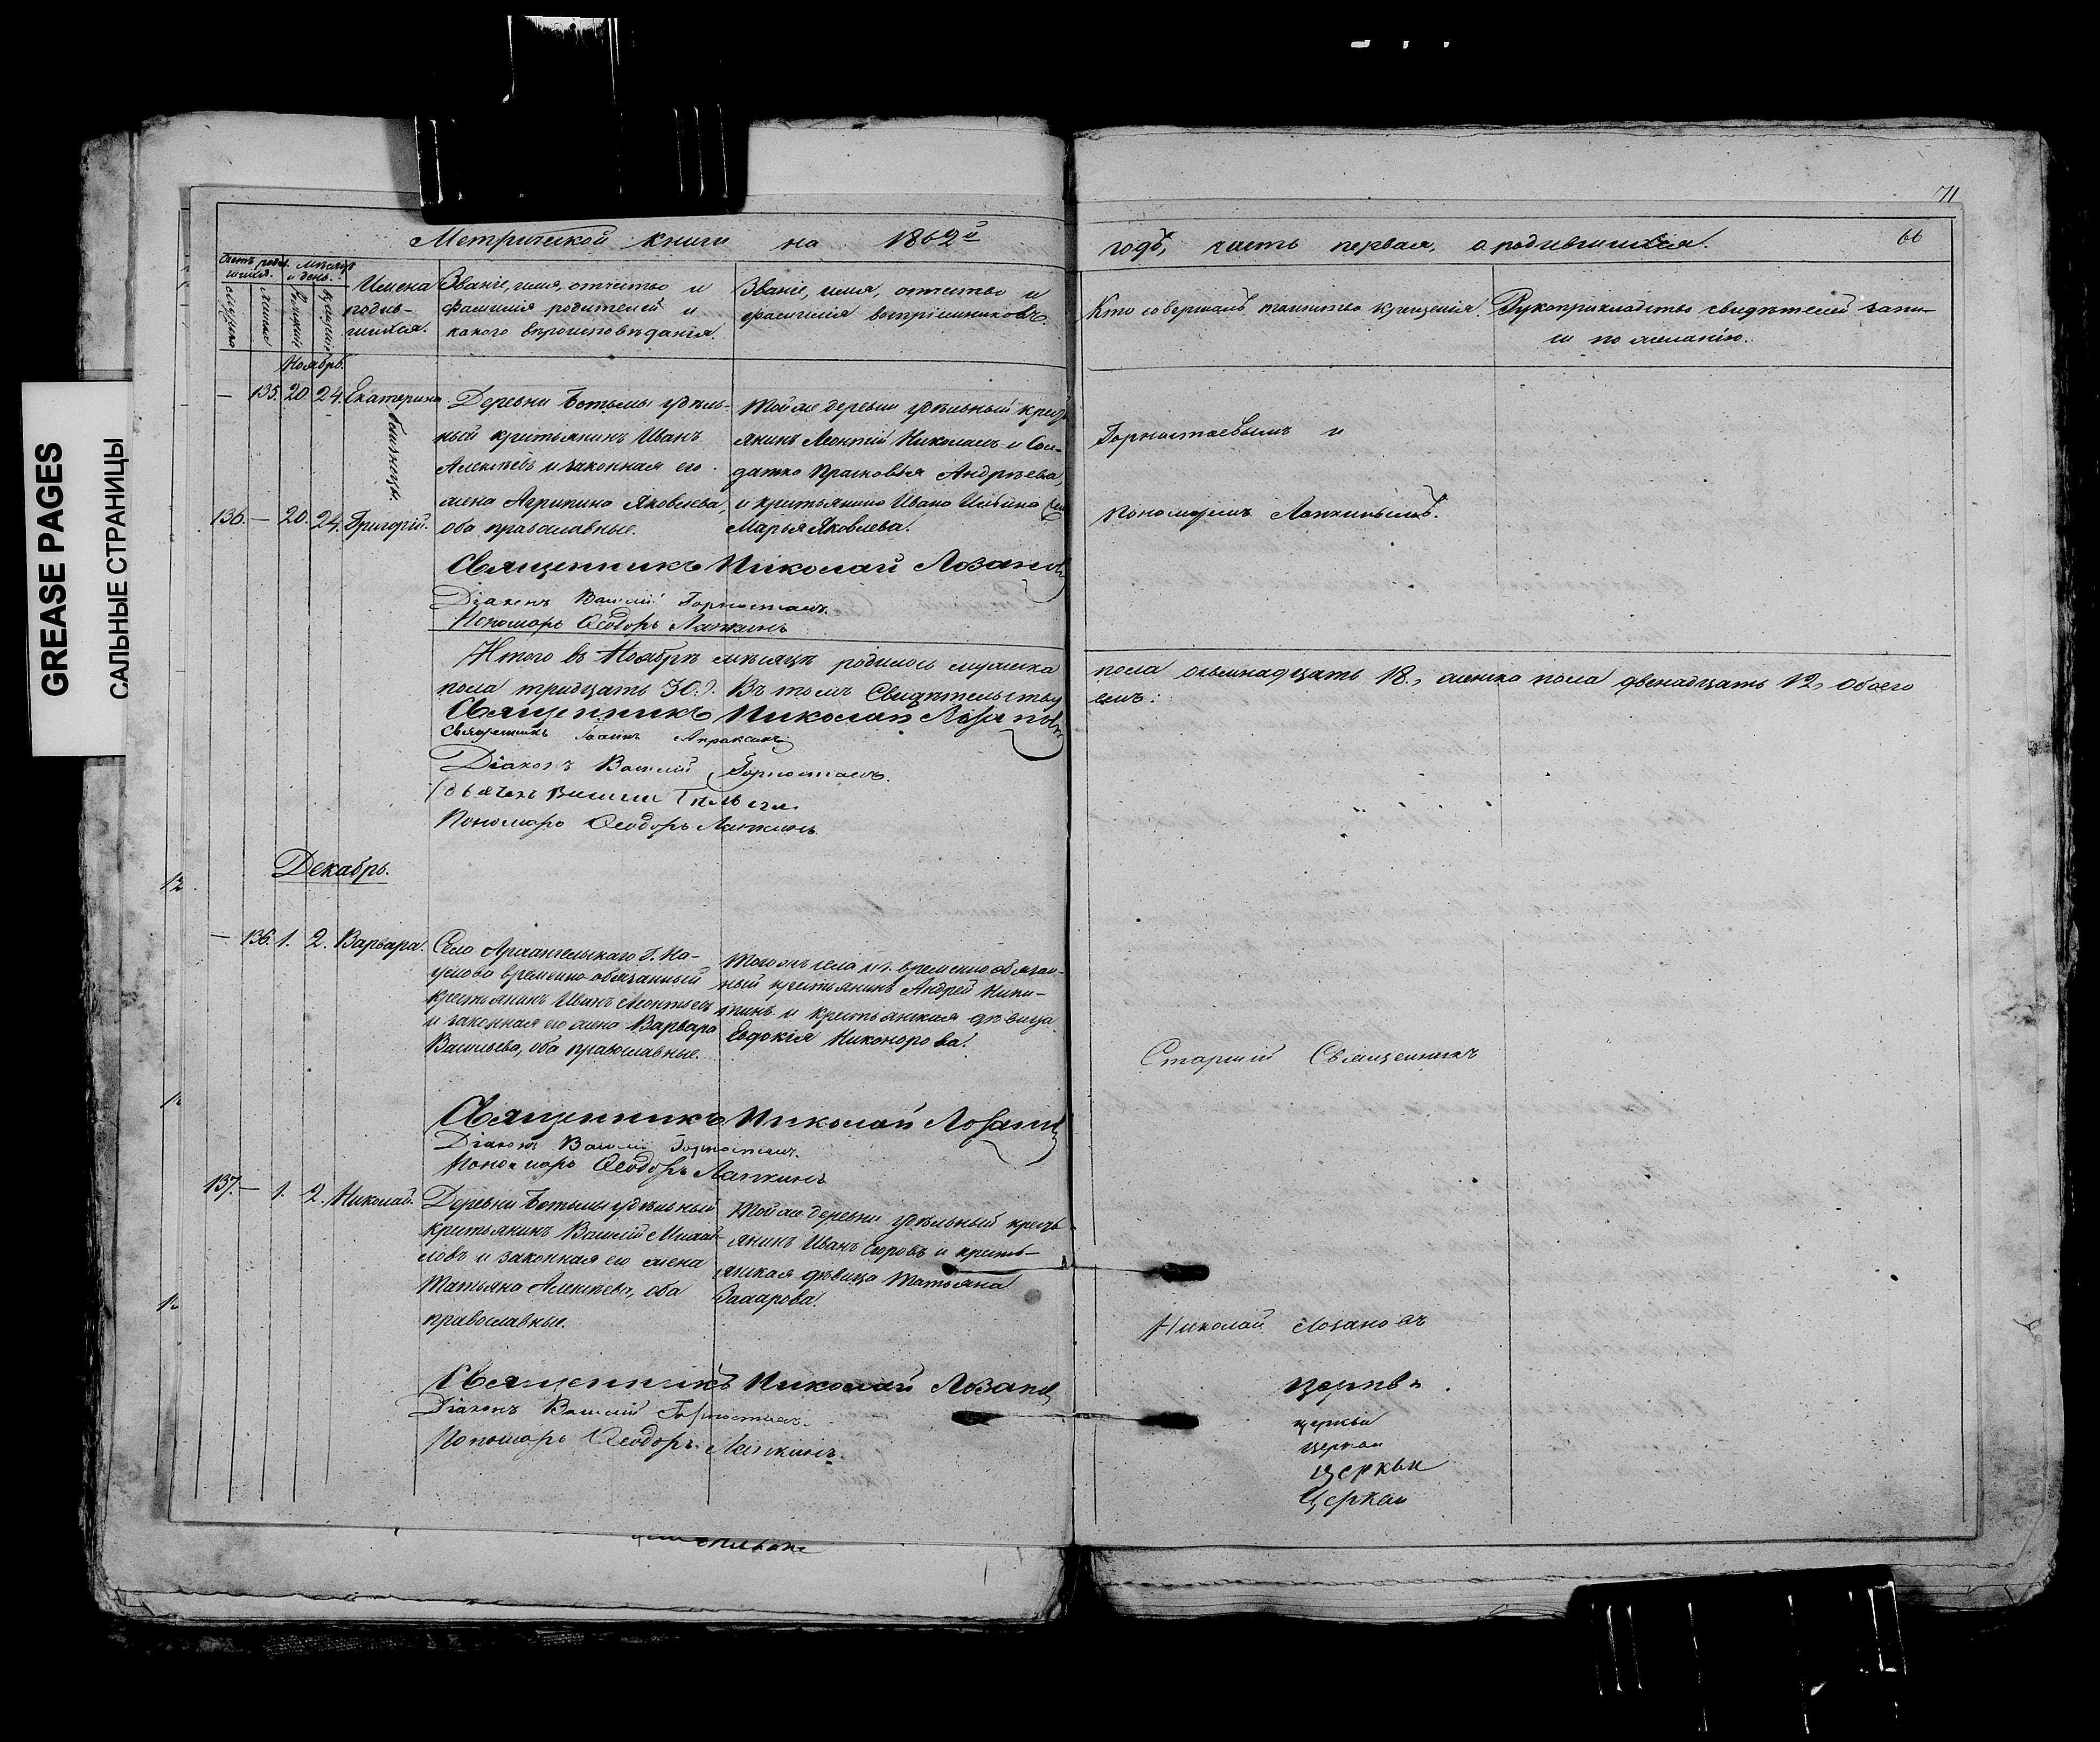 GREASE PAGES
САЛЬНЫЕ СТРАНИЦЫ
71
66
Метрической книги на 1862й
годъ, часть первая, о родившихся.
Счетъ родившихся.
Мѣсяцъ и день.
Мужеска
Женска
Рожденія
Крещенія
Имена родив-
шихся.
Званіе, имя, отчество и
фамилія родителей и
какого вѣроисповѣданія.
Званіе, имя, отчество и
фамилія воспріемниковъ.
Кто совершалъ таинство крещенія.
Рукоприкладство свидѣтелей запи-
си по желанію.
Ноябрь.
— 135. 20. 24. Екатерина
близнецы.
136. — 20. 24. Григорій.
Деревни Ботьмы удѣль-
ный крестьянинъ Иванъ
Алексѣевъ и законная его
жена Агрипина Яковлева,
оба православные.
Той же деревни удѣльный кресть-
янинъ Леонтій Николаевъ и Сол-
датка Прасковья Андрѣева,
и крестьянина Ивана
Марья Яковлева.
Горностаевымъ и
пономаремъ Лапкинымъ.
Священникъ Николай Лозановъ
Діаконъ Василій Горностаевъ.
Пономарь Ѳеодоръ Лапкинъ
Итого въ Ноябрѣ мѣсяцѣ родилось мужеска
пола осьмнадцать 18., женска пола двенадцать 12, Обоего
пола тридцать 30. Въ томъ Свидѣтельству
емъ:
Священникъ Николай Лозановъ
Священникъ Іоаннъ Апраксинъ
Діаконъ Василій Горностаевъ.
Пономарь Ѳеодоръ Лапкинъ.
Декабрь.
— 136. 1. 2. Варвара.
Села Архангельскаго Г. На-
умова временно-обязанный
крестьянинъ Иванъ Леонтьевъ
и законная его жена Варвара
Васильева, оба православные.
Того жъ села временно обязан-
ный крестьянинъ Андрей Ники-
тинъ и крестьянская дѣвица
Евдокія Никонорова.
Старшій Священникъ
Священникъ Николай Лозановъ
Діаконъ Василій Горностаевъ.
Пономарь Ѳеодоръ Лапкинъ
137. — 1. 2. Николай.
Деревни Ботьмы удѣльный
крестьянинъ Василій Михай-
ловъ и законная его жена
Татьяна Алексѣева, оба
православные.
Той же деревни удѣльный кресть-
янинъ Иванъ Егоровъ и кресть-
янская дѣвица Татьяна
Захарова.
Николай Лозановъ
Священникъ Николай Лозановъ
Діаконъ Василій Горностаевъ.
Пономарь Ѳеодоръ Лапкинъ.
Церкви
церкви
церкви
Церкви
Церкви